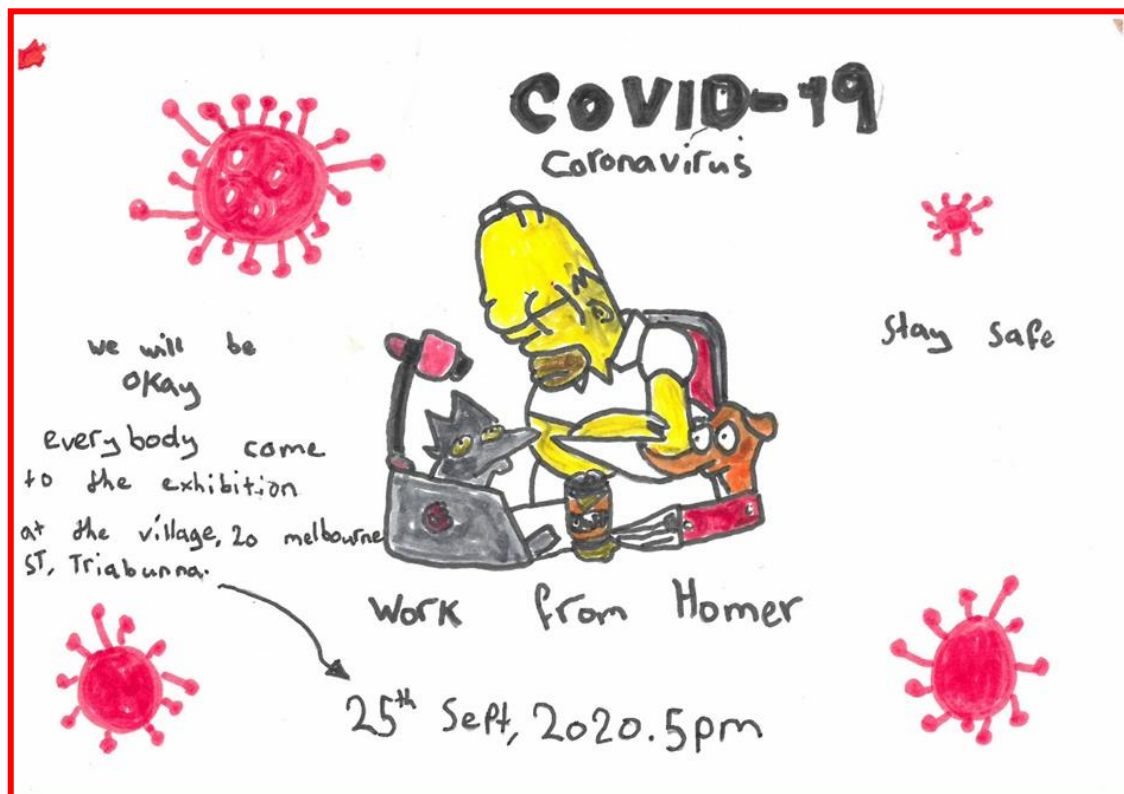 COVID-19
Coronavirus
we will be
okay
everybody come
to the exhibition
at the village, 20 melbourne
ST, Triabunna.
Stay Safe
Work from Homer
25th Sept, 2020. 5pm